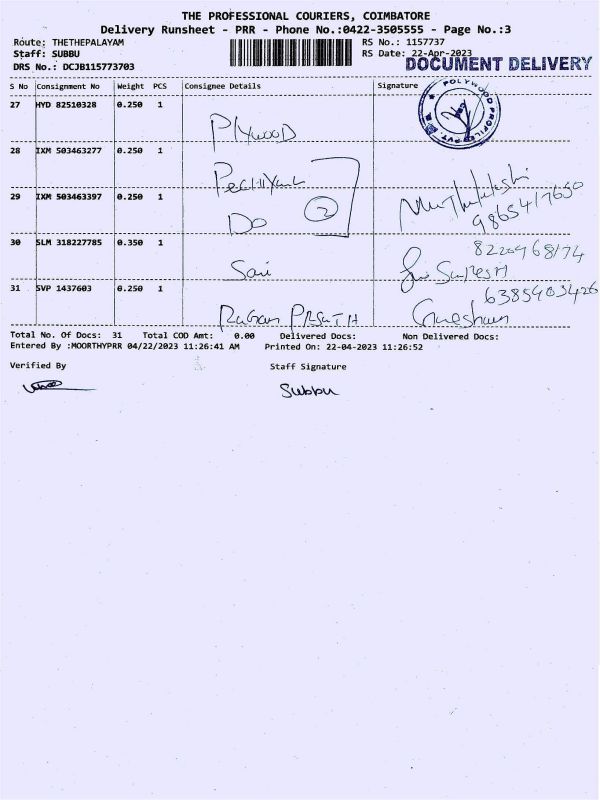 THE PROFESSIONAL COURIERS, COIMBATORE
Delivery Runsheet - PRR - Phone No.:0422-3505555 - Page No.:3
Route: THETHEPALAYAM RS No.: 1157737
Staff: SUBBU RS Date: 22-Apr-2023
DRS No.: DCJB115773703 DOCUMENT DELIVERY
S No Consignment No Weight PCS Consignee Details Signature
27 HYD 82510328 0.250 1
Plywood
28 IXM 503463277 0.250 1
29 IXM 503463397 0.250 1
Do 2
30 SLM 318227785 0.350 1
Sai
31 SVP 1437603 0.250 1
Total No. Of Docs: 31 Total COD Amt: 0.00 Delivered Docs: Non Delivered Docs:
Entered By :MOORTHYPRR 04/22/2023 11:26:41 AM Printed On: 22-04-2023 11:26:52
Verified By Staff Signature
Subbu